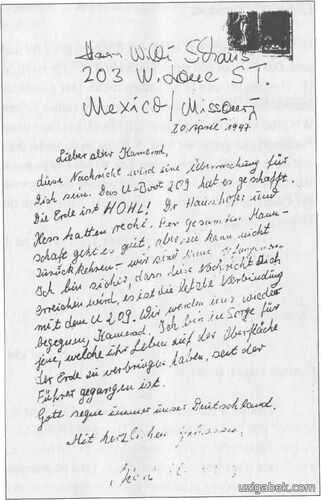 Herrn W. Schaus
203 W. Love ST.
Mexico / Missouri
20. April 1947
Lieber alter Kamerad,
diese Nachricht wird eine Überraschung für
Dich sein. Das U-Boot 209 hat es geschafft.
Die Erde ist HOHL! Dr Haushofer und
Hess hatten recht. Der gesamten Mann-
schaft geht es gut, aber sie kann nicht
zurückkehren - wir sind keine Gefangenen
Ich bin sicher, dass diese Nachricht Dich
erreichen wird, es ist die letzte Verbindung
mit dem U 209. Wir werden uns wieder
begegnen, Kamerad. Ich bin in Sorge für
jene, welche ihr Leben auf der Oberfläche
der Erde zu verbringen haben, seit der
Führer gegangen ist.
Gott segne immer unser Deutschland.
Mit herzlichen Grüssen,
uzigabek.com